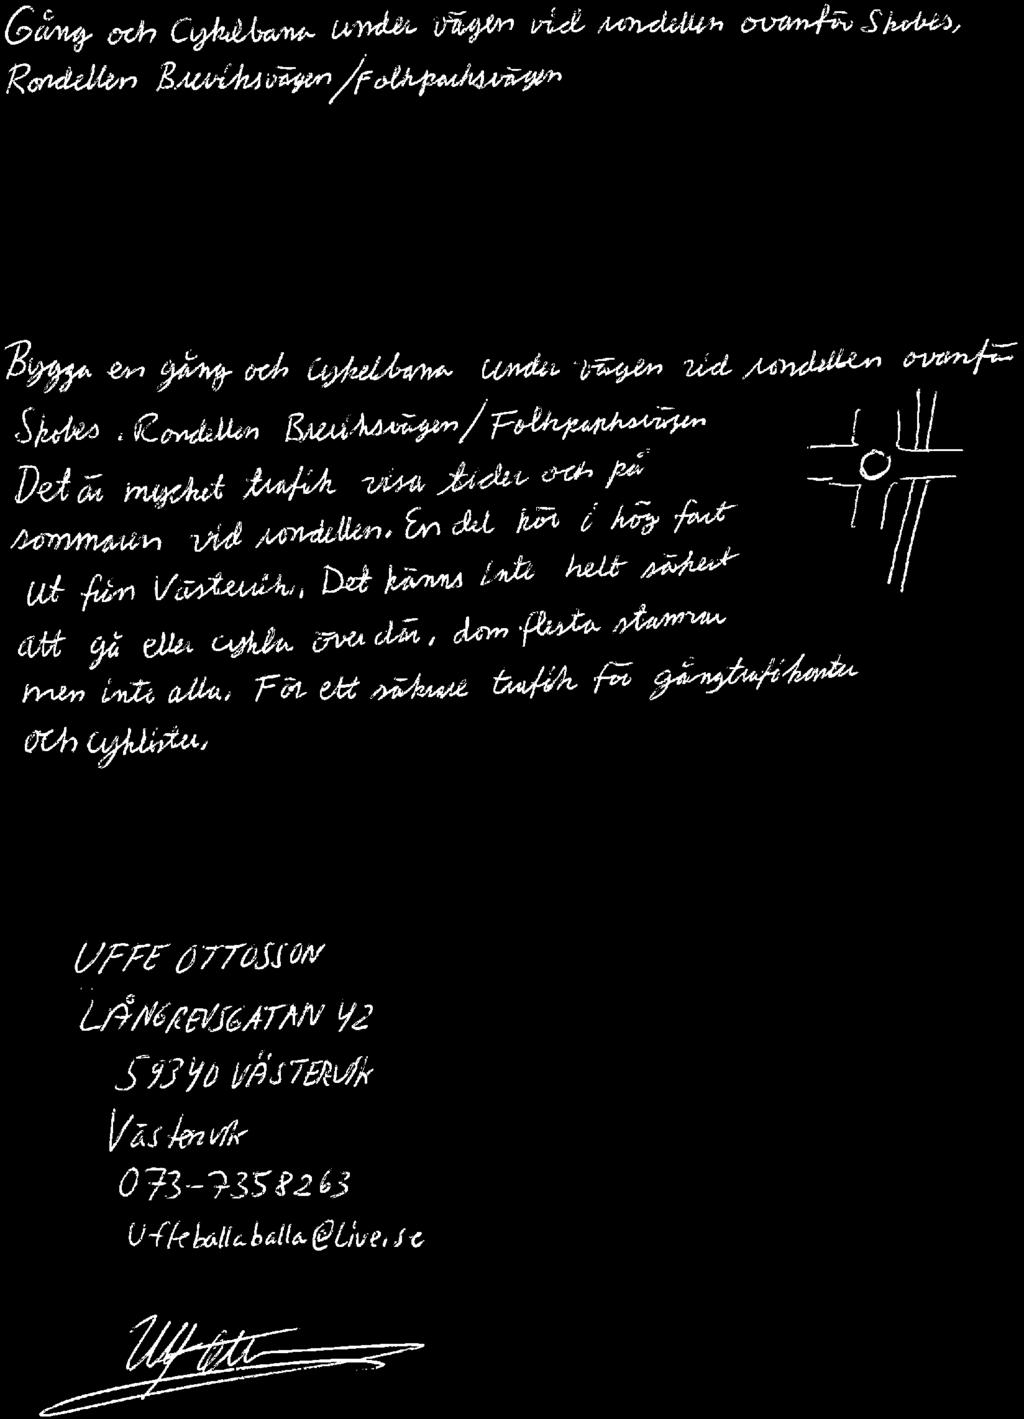 Gång och Cykelbana under vägen vid rondellen ovanför Skobes,
Rondellen Breviksvägen/Folkparksvägen
Bygga en gång och cykelbana under vägen vid rondellen ovanför
Skobes. Rondellen Breviksvägen/Folkparksvägen
Det är mycket trafik visa tider och på
sommaren vid rondellen. En del kör i hög fart
ut från Västervik. Det känns inte helt säkert
att gå eller cykla över där, dom flesta stannar
men inte alla. För ett säkrare trafik för gångtrafikanter
och cyklister.
UFFE OTTOSSON
LÅNGREVSGATAN 42
59340 VÄSTERVIK
Västervik
073-7358263
Uffeballaballa@Live.se